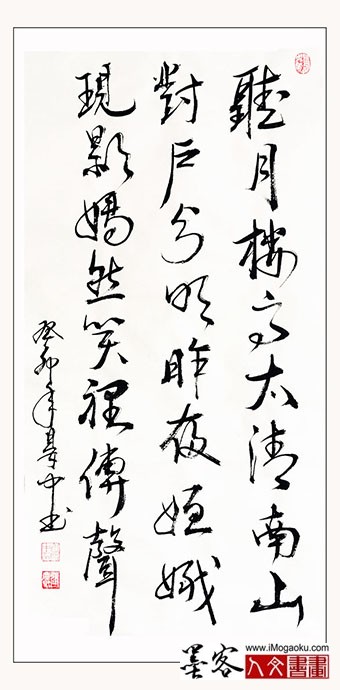 聽月樓高太清南山
對戶分明昨夜姮娥
現影嫣然笑裡傳聲
癸卯年
書
墨客
www.iMogaoku.com
人文書畫